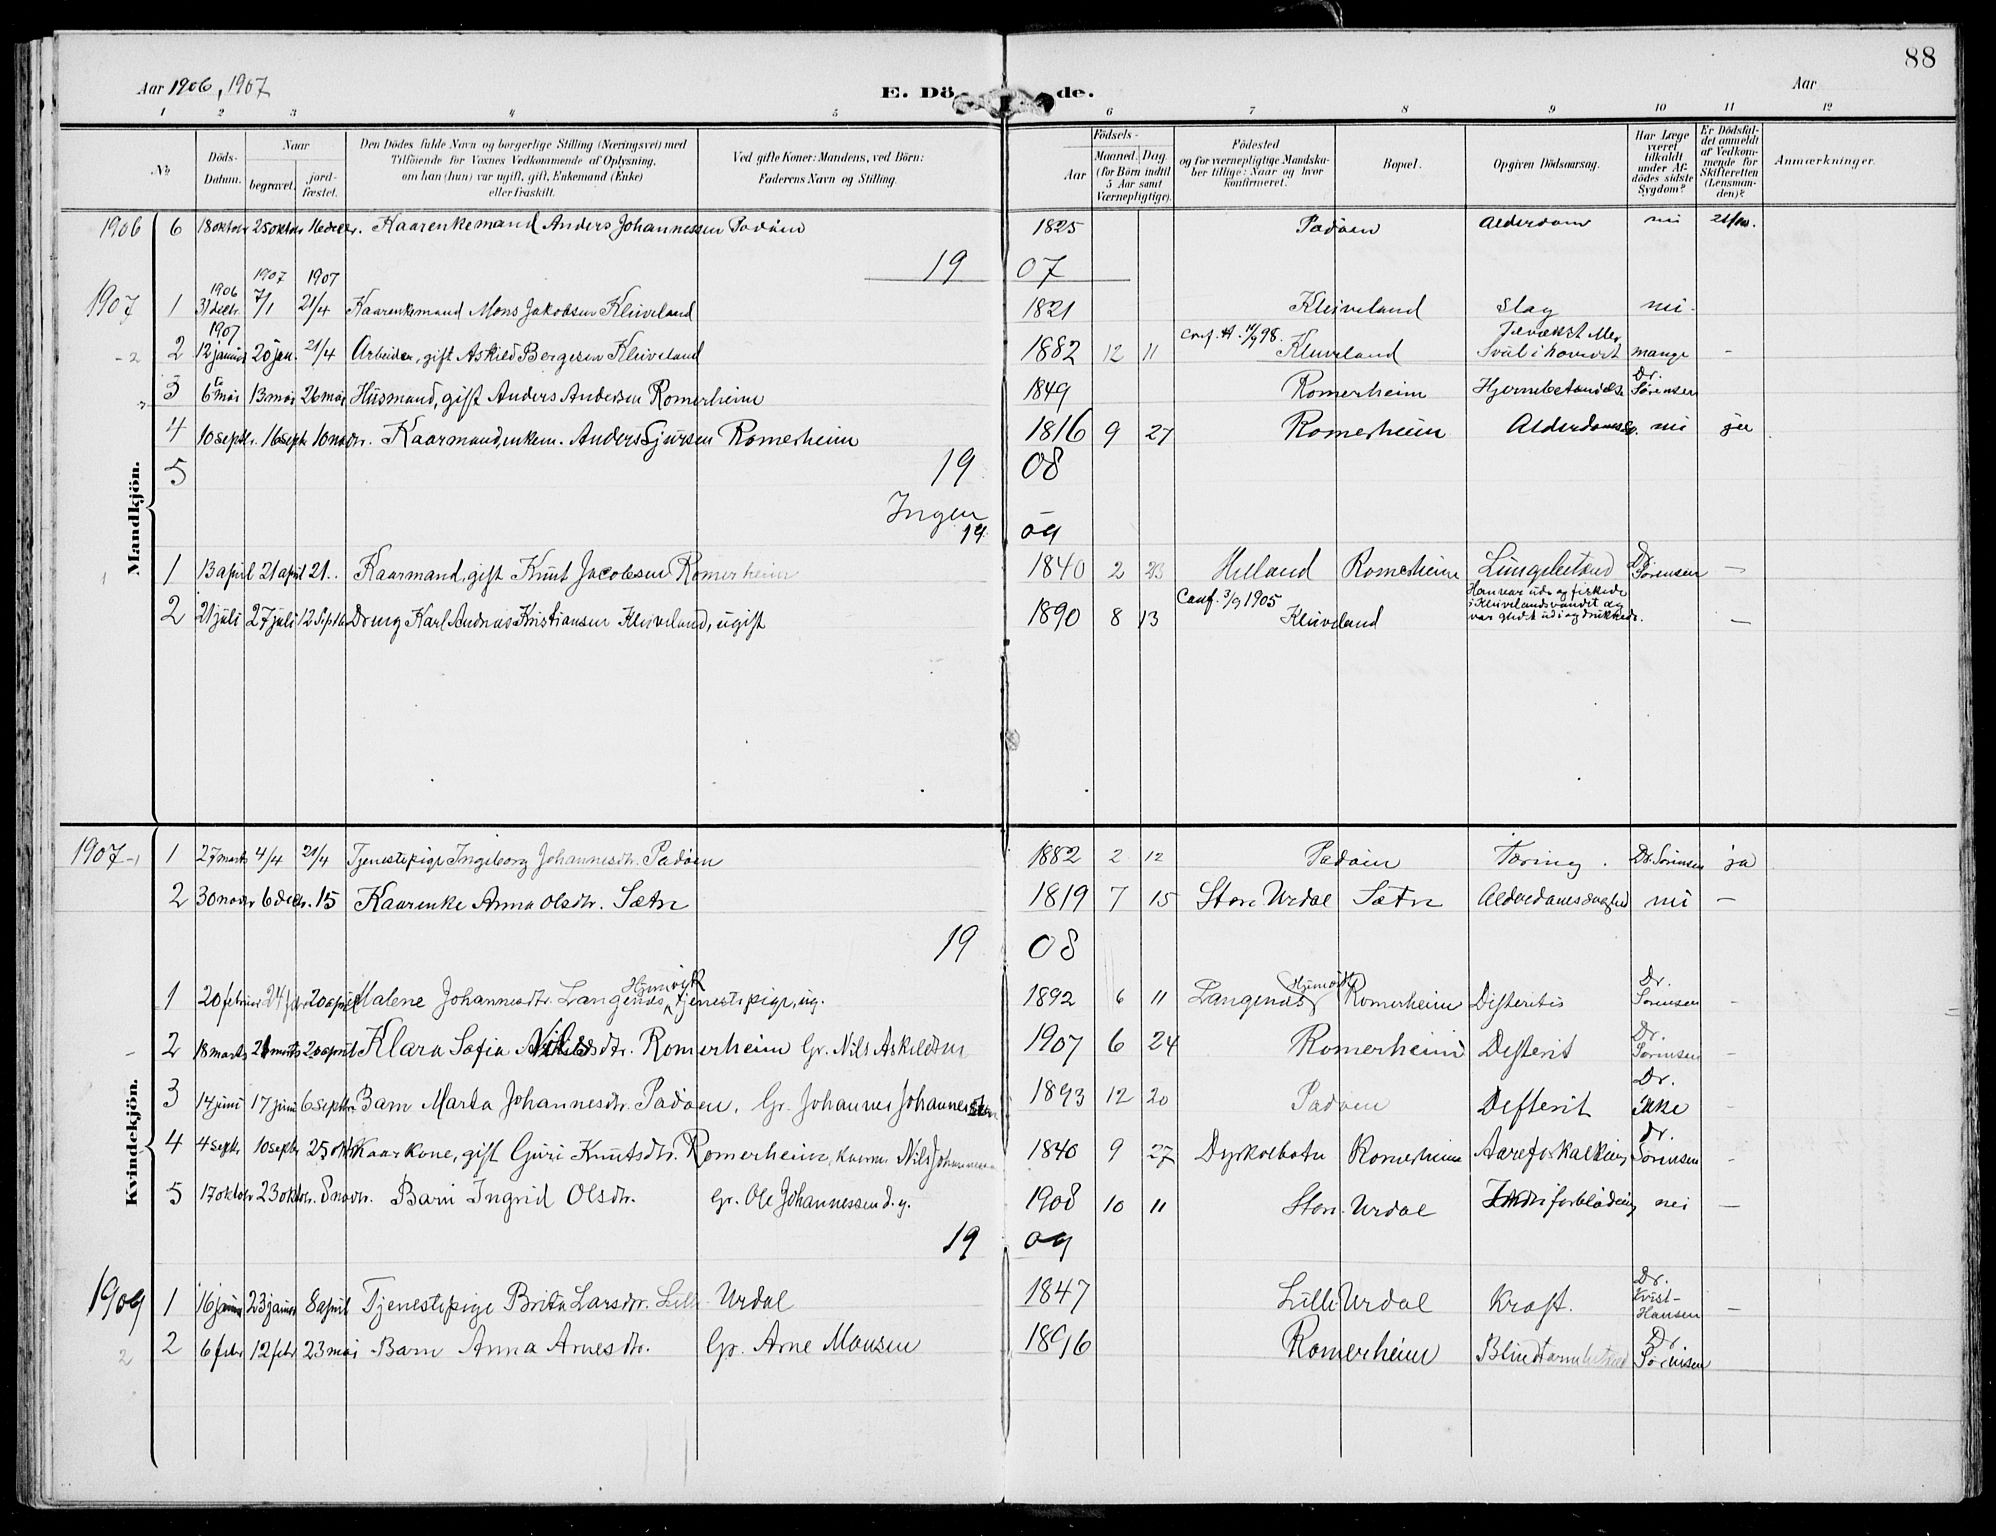 88
Aar 1906, 1907
E. Dö de.
Aar
1 2 3 4 5 6 7 8 9 10 11 12
No.
Döds-Datum.
Naar
begravet.
jord-fæstet.
Den Dödes fulde Navn og borgerlige Stilling (Næringsvei) med
Tilföiende for Voxnes Vedkommende af Oplysning,
om han (hun) var ugift, gift, Enkemand (Enke)
eller fraskilt.
Ved gifte Koner: Mandens, ved Börn:
Faderens Navn og Stilling.
Födsels-
Aar
Maaned. Dag.
(for Börn indtil
5 Aar samt
Værnepligtige).
Födested
og for værnepligtige Mandska-
ber tillige: Naar og hvor
konfirmeret.
Bopæl.
Opgiven Dödsaarsag.
Har Læge
været
tilkaldt
under Af-
dödes sidste
Sygdom?
Er Dödsfal-
det anmeldt
af Vedkom-
mende for
Skifteretten
(Lensman-
den)?
Anmærkninger.
Mandkjön.
1906 6 18 oktobr 25 oktbr 16 decbr. Kaarenkemand Anders Johannessen Padöen 1825 Padöen Alderdom nei
19 07
1907 1907
1906
1907 1 31 decbr. 7/1 21/4 Kaarenkemand Mons Jakobsen Kleiveland 1821 Kleiveland Slag nei
1907
2 12 januar 20 jan. 21/4 Arbeider, gift Askild Bergesen Kleiveland 1882 12 11 Conf. Kleiveland mange –
3 6 mai 13 mai 26 mai Husmand, gift Anders Andersen Romerheim 1849 Romerheim Hjernebetændelse Dr. Sørensen
4 10 septbr. 16 septb 10 novbr. Kaarmand, enkem. Anders Sjursen Romerheim 1816 9 27 Romerheim nei ja
5 19 08
Ingen
19 09
1 13 april 21 april 21.. Kaarmand, gift Knut Jacobsen Romerheim 1840 2 23 Helland Romerheim Lungebetænd Dr. Sørensen –
2 21 juli 27 juli 12 Septbr Dreng Karl Andreas Kristiansen Kleiveland, ugift 1890 8 13 Conf. 3/9 1905 Kleiveland Han var ude og fiskede
i Kleivelandsvandet og
var glidt udi og druknede. –
Kvindekjön.
1907 1 27 marts 4/4 21/4 Tjenestepige Ingeborg Johannesdtr. Padöen 1882 2 12 Padöen Tæring. Dr. Sørensen ja
2 30 novbr 6 decbr. 15 Kaarenke Anna Olsdtr. Sætre 1819 7 15 Store Urdal Sætre Alderdomssvaghed nei –
19 08
1 20 februar 24 feb 20 april Malene Johannesdtr. Langenæs, Hunvik tjenestepige, ug. 1892 6 11 Langenæs Hunvik Romerheim Difteritis Dr. Sørensen –
2 18 marts 26 marts 20 april Klara Sofia Nilsdtr. Romerheim Gr. Nils Askildsen 1907 6 24 Romerheim Difterit Dr. Sørensen –
3 14 juni 17 juni 6 septbr. Barn Marta Johannesdtr. Padöen. Gr. Johannes Johannessen 1893 12 20 Padöen Difterit Dr. ikke –
4 4 septb 10 septb 25 oktb Kaarkone, gift Guri Knutsdtr. Romerheim, Nils 1840 9 27 Dyrkolbotn Romerheim Aareforkalkning Dr. Sørensen –
5 17 oktobr 23 oktbr. 8 novbr. Barn Ingrid Olsdtr. Gr. Ole Johannessen d.y. 1908 10 11 Store Urdal nei –
19 09
1909 1 16 januar 23 januar 8 april Tjenestepige Brita Larsdtr. Lille Urdal 1847 Lille Urdal Kræft. Dr. Kvist-Hansen –
2 6 febr 12 febr 23 mai Barn Anna Arnesdtr. Gr. Arne Monsen 1896 Romerheim Blindtarmbetænd Dr. Sørensen